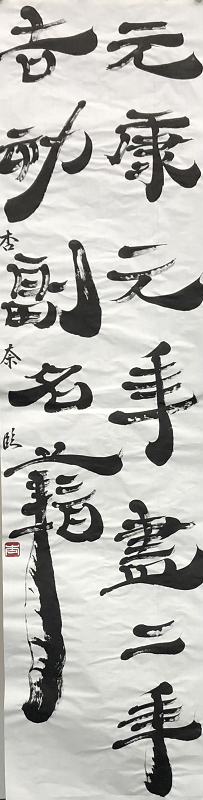 元康元年盡二年
告劾副名籍
杏奈臨